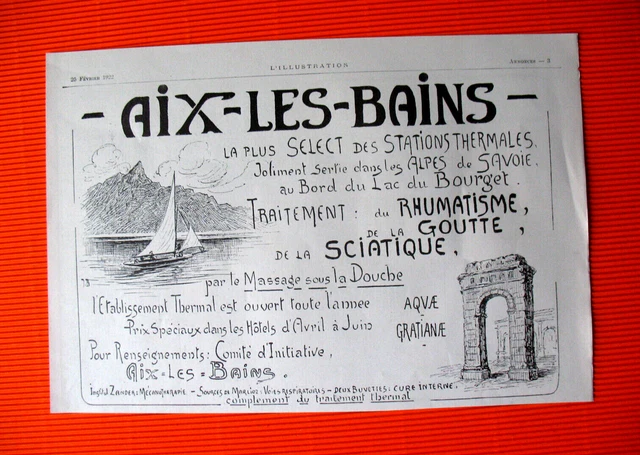 L'ILLUSTRATION
Annonces — 3
25 Février
- AIX-LES-BAINS -
LA PLUS SELECT DES STATIONS THERMALES.
Joliment Sertie dans les ALPES de SAVOIE.
au Bord du Lac du Bourget.
TRAITEMENT : du RHUMATISME,
DE LA GOUTTE,
DE LA SCIATIQUE,
par le Massage sous la Douche
l'Etablissement Thermal est ouvert toute l'année
Prix Spéciaux dans les Hôtels d'Avril à Juin
AQVÆ
GRATIANÆ
Pour Renseignements : Comité d'Initiative,
AIX-LES-BAINS.
Institut Zander: Mécanothérapie - Sources de Marlioz: Voies respiratoires - Deux Buvettes: Cure interne.
complément du traitement thermal